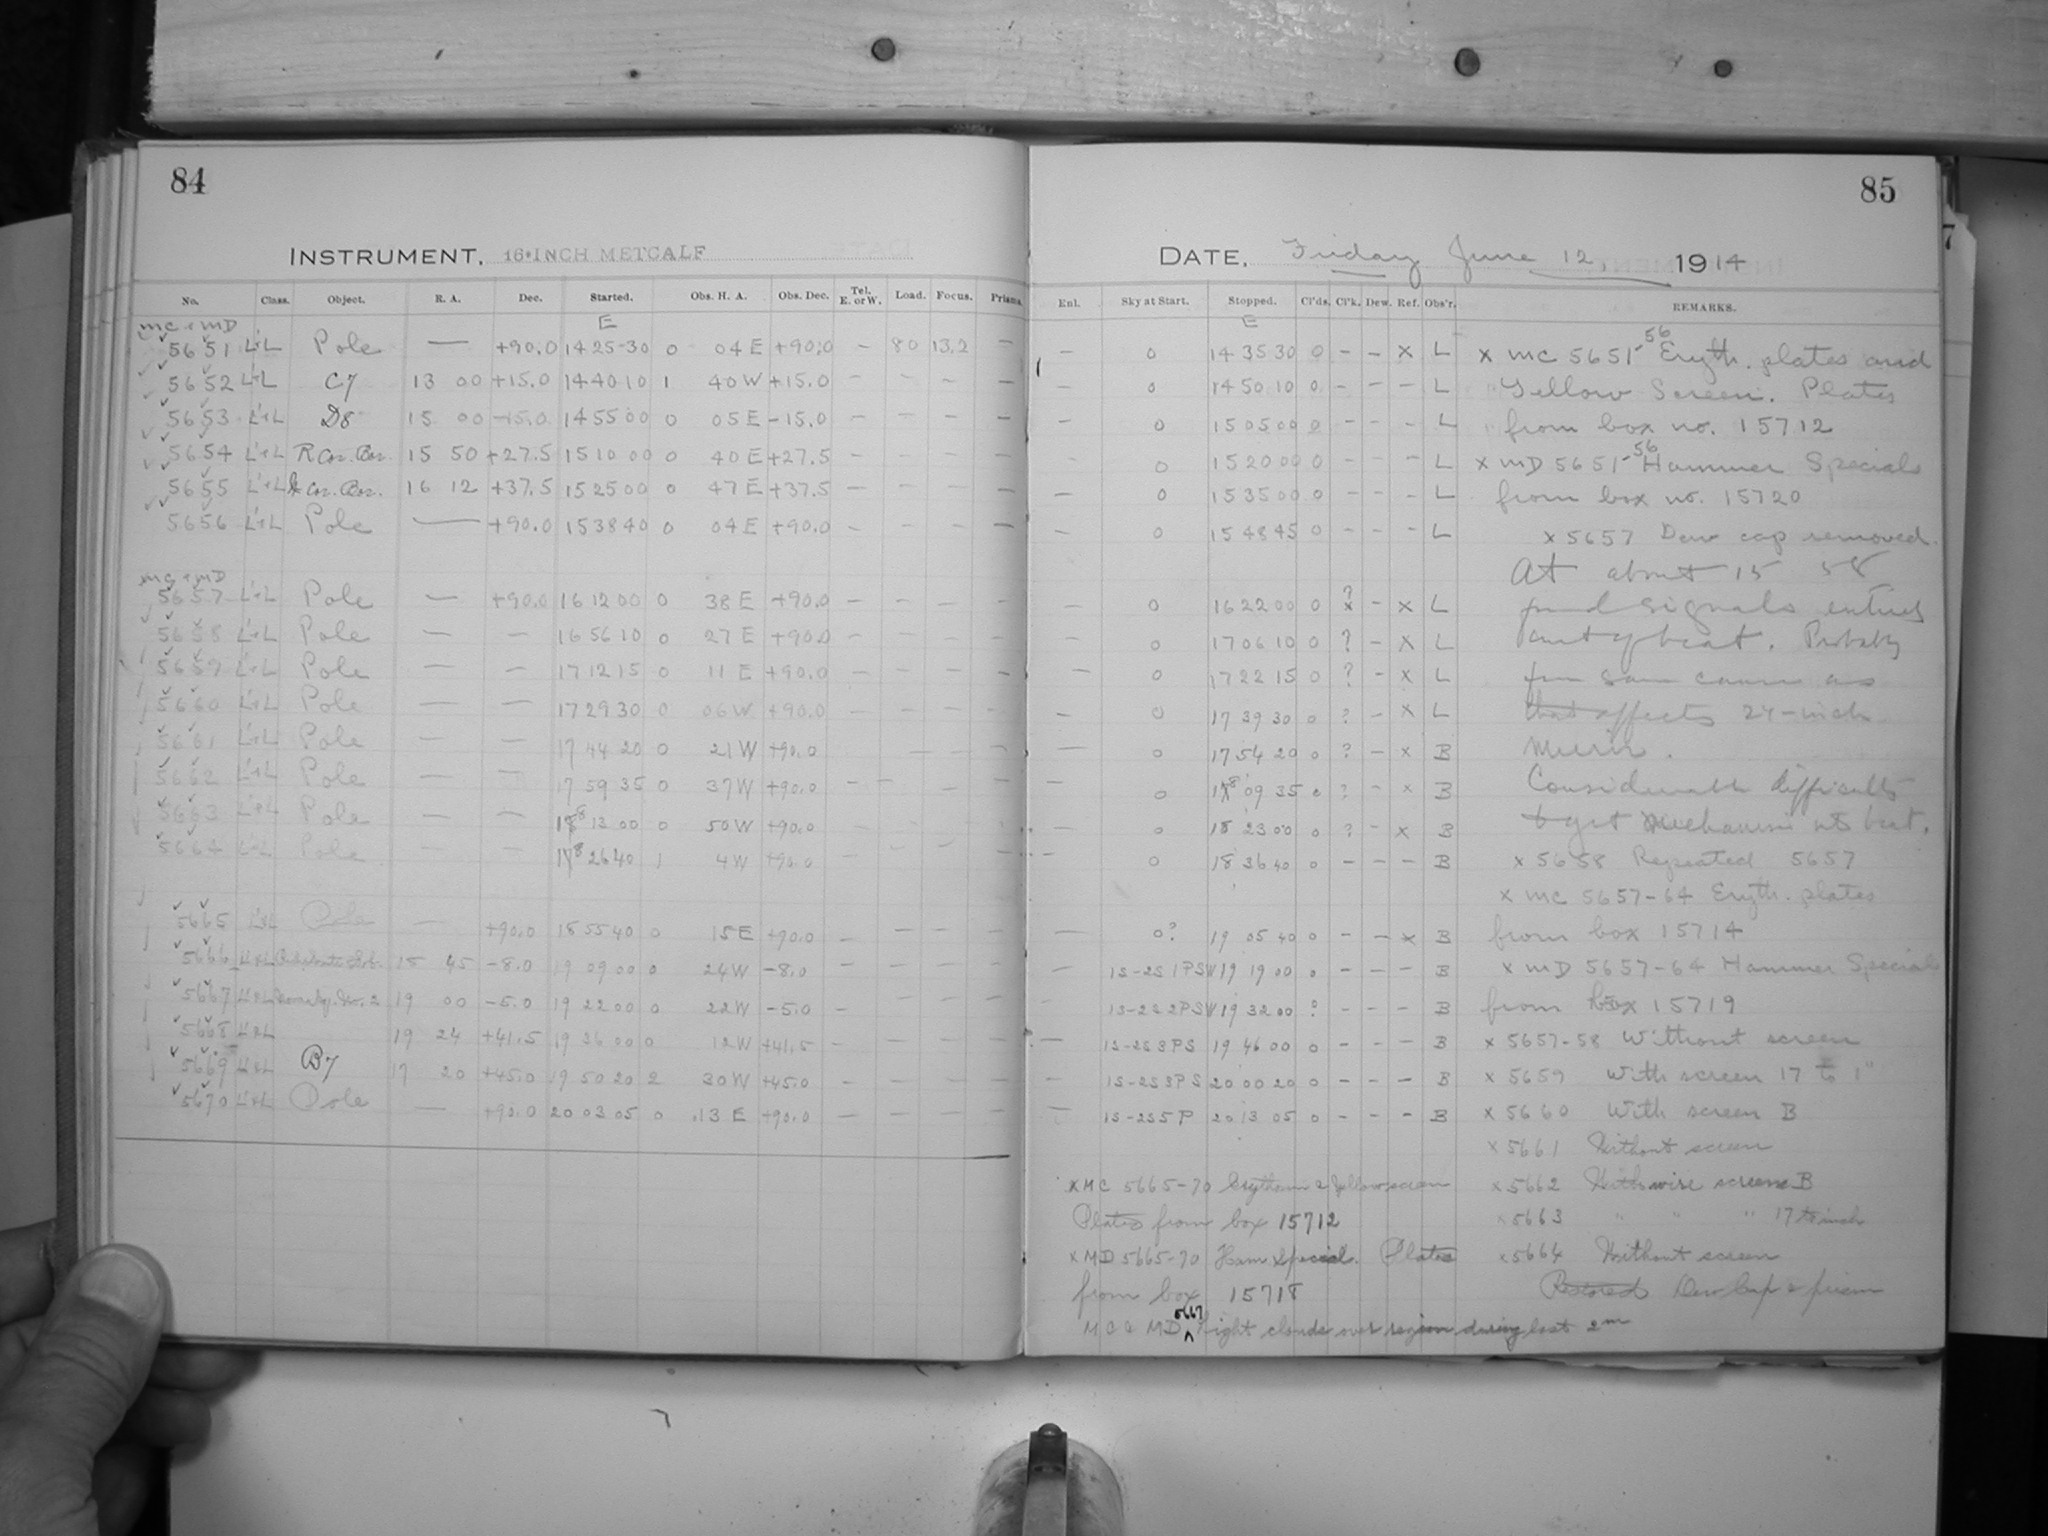 84
INSTRUMENT, 16-INCH METCALF
No. Class. Object. R. A. Dec. Started. Obs. H. A. Obs. Dec. Tel. E. or W. Load. Focus. Prisms.
MC + MD E
5651 L+L Pole — +90.0 14 25-30 0 04 E +90.0 – 80 13.2 —
5652 L+L C7 13 00 +15.0 14 40 10 1 40 W +15.0 – – – —
5653 L+L D8 15 00 -15.0 14 55 00 0 05 E -15.0 – – – —
5654 L+L R Cor. Bor. 15 50 +27.5 15 10 00 0 40 E +27.5 – – – —
5655 L+L Cor. Bor. 16 12 +37.5 15 25 00 0 47 E +37.5 – – – —
5656 L+L Pole — +90.0 15 38 40 0 04 E +90.0 – – – —
MC + MD
5657 L+L Pole — +90.0 16 12 00 0 38 E +90.0 – – – —
5658 L+L Pole — — 16 56 10 0 27 E +90.0 – – – —
5659 L+L Pole — — 17 12 15 0 11 E +90.0 – – – —
5660 L+L Pole — — 17 29 30 0 06 W +90.0 – – – —
5661 L+L Pole — — 17 44 20 0 21 W +90.0 – – —
5662 L+L Pole — — 17 59 35 0 37 W +90.0 – – – —
5663 L+L Pole — — 18 13 00 0 50 W +90.0 – – – —
5664 L+L Pole — — 18 26 40 1 4 W +90.0 – – – —
5665 L+L Pole — +90.0 18 55 40 0 15 E +90.0 – – – —
5666 L+L 18 45 -8.0 19 09 00 0 24 W -8.0 – – – —
5667 L+L No. 2 19 00 -5.0 19 22 00 0 22 W -5.0 –
5668 L+L 19 24 +41.5 19 36 00 0 12 W +41.5 – – – —
5669 L+L B7 17 20 +45.0 19 50 20 2 30 W +45.0 – – – —
5670 L+L Pole — +90.0 20 03 05 0 13 E +90.0 – – – —
85
DATE, Friday June 12 1914
Enl. Sky at Start. Stopped. Cl'ds. Cl'k. Dew. Ref. Obs'r. REMARKS.
E
– 0 14 35 30 0 – – x L
– 0 14 50 10 0 – – – L
– 0 15 05 00 0 – – – L
0 15 20 00 0 – – – L
– 0 15 35 00 0 – – – L
– 0 15 48 45 0 – – – L
– 0 16 22 00 0 ? x – x L
– 0 17 06 10 0 ? – x L
– 0 17 22 15 0 ? – x L
0 17 39 30 0 ? – x L
– 0 17 54 20 0 ? – x B
– 0 18 09 35 0 ? – x B
– 0 18 23 00 0 ? – x B
– 0 18 36 40 0 – – – B
– 0? 19 05 40 0 – – x B
– 1S-2S 1PSW 19 19 00 0 – – – B
1S-2S 2PSW 19 32 00 ? – – – B
– 1S-2S 3PS 19 46 00 0 – – – B
– 1S-2S 3PS 20 00 20 0 – – – B
– 1S-2S 5P 20 13 05 0 – – – B
x MC 5651-56 Eryth. plates and
Yellow Screen. Plates
from box no. 15712
x MD 5651-56 Hammer Specials
from box no. 15720
x 5657 Dew cap removed.
At about 15 58
found signals entirely
out of beat. Probably
from same cause as
that affects 24-inch
Considerable difficulty
to get mechanism its beat.
x 5658 Repeated 5657
x MC 5657-64 Eryth. plates
from box 15714
x MD 5657-64 Hammer Special
from box 15719
x 5657-58 Without screen
x 5659 With screen 17 to 1"
x 5660 With screen B
x 5661 Without screen
x 5662 With wire screen B
x 5663 " " " 17 to inch
x 5664 Without screen
Restored Dew Cap & prism
x MC 5665-70 Erythrosin & yellow screen
Plates from box 15712
x MD 5665-70 Ham Special. Plates
from box 15718
MC & MD 5667 Light clouds over region during last 2m